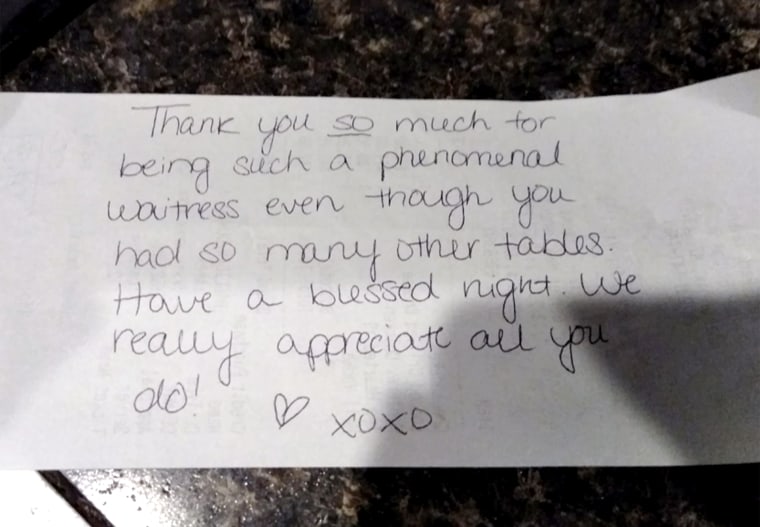 Thank you so much for
being such a phenomenal
waitress even though you
had so many other tables.
Have a blessed night. We
really appreciate all you
do! ♡ xoxo